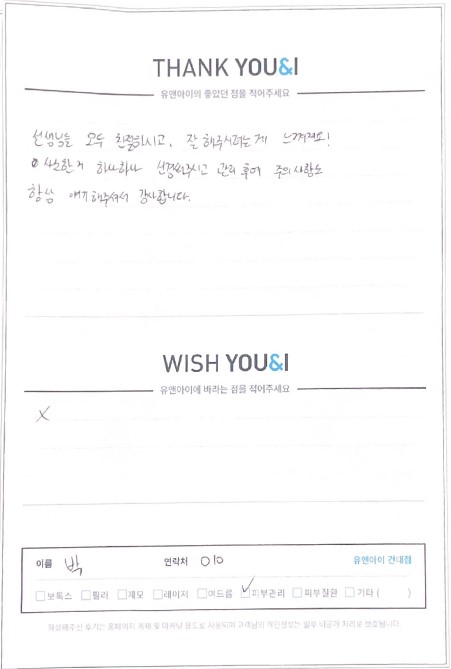 THANK YOU&I
유앤아이의 좋았던 점을 적어주세요
선생님들 모두 친절하시고, 잘 해주시려는게 느껴져요!
사소한거 하나하나 신경써주시고 관리 후에 주의사항도
항상 얘기해주셔서 감사합니다.
WISH YOU&I
유앤아이에 바라는 점을 적어주세요
X
이름 박 연락처 010 유앤아이 건대점
□보톡스 □필러 □제모 □레이저 □여드름 ☑피부관리 □피부질환 □기타 ( )
작성해주신 후기는 홈페이지 게재 및 마케팅 용도로 사용되며 고객님의 개인정보는 일부 비공개 처리로 보호됩니다.